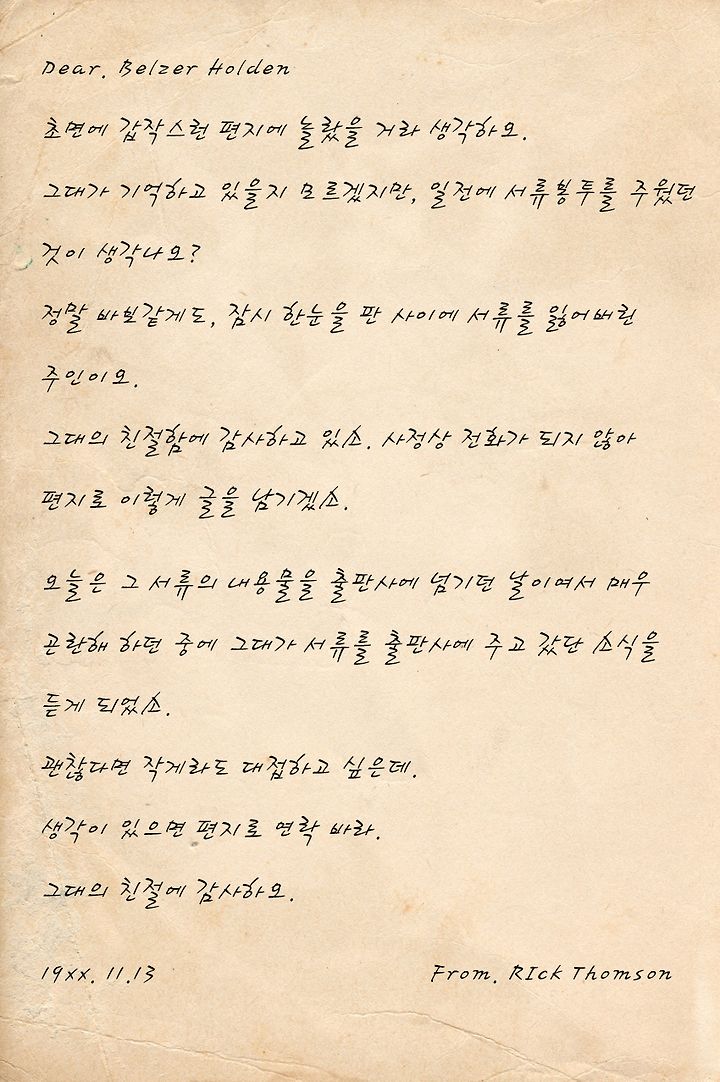 Dear. Belzer Holden
초면에 갑작스런 편지에 놀랐을 거라 생각하오.
그대가 기억하고 있을지 모르겠지만, 일전에 서류봉투를 주웠던
것이 생각나오?
정말 바보같게도, 잠시 한눈을 판 사이에 서류를 잃어버린
주인이오.
그대의 친절함에 감사하고 있소. 사정상 전화가 되지 않아
편지로 이렇게 글을 남기겠소.
오늘은 그 서류의 내용물을 출판사에 넘기던 날이여서 매우
곤란해 하던 중에 그대가 서류를 출판사에 주고 갔단 소식을
듣게 되었소.
괜찮다면 작게라도 대접하고 싶은데.
생각이 있으면 편지로 연락 바라.
그대의 친절에 감사하오.
19xx. 11.13
From. RIck Thomson